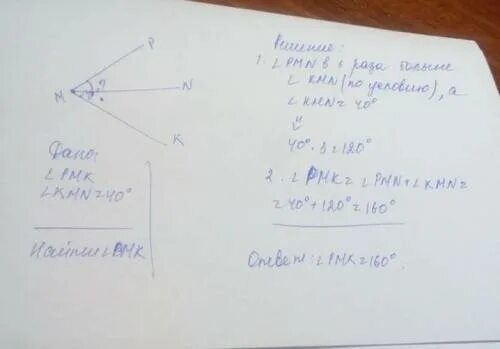 P
M
N
K
Дано:
∠PMK
∠KMN=40°
Найти: ∠PMK
Решение:
1. ∠PMN в 3 раза больше
∠KMN (по условию), а
∠KMN = 40°
40°·3=120°
2. ∠PMK= ∠PMN+∠KMN=
=40°+120°=160°
Ответ: ∠PMK=160°.